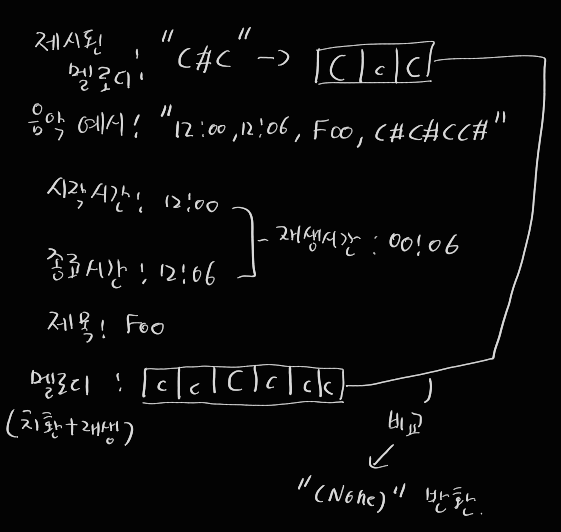 제시된 멜로디 : "C#C" -> C c C
음악 예시 : "12:00,12:06, Foo, C#C#CC#"
시작시간 : 12:00
재생시간 : 00:06
종료시간 : 12:06
제목 : Foo
멜로디 : c c C c c
(치환+재생)
비교
"(None)" 반환.